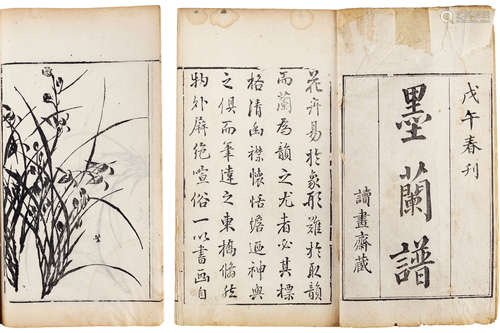 戊午春刊
墨蘭譜
讀畫齋藏
花卉易於象形難於取韻
而蘭為韻之尤者必其標
格清幽襟懷恬澹迺神與
之俱而筆達之東橋翛然
物外屏絶喧俗一以書画自